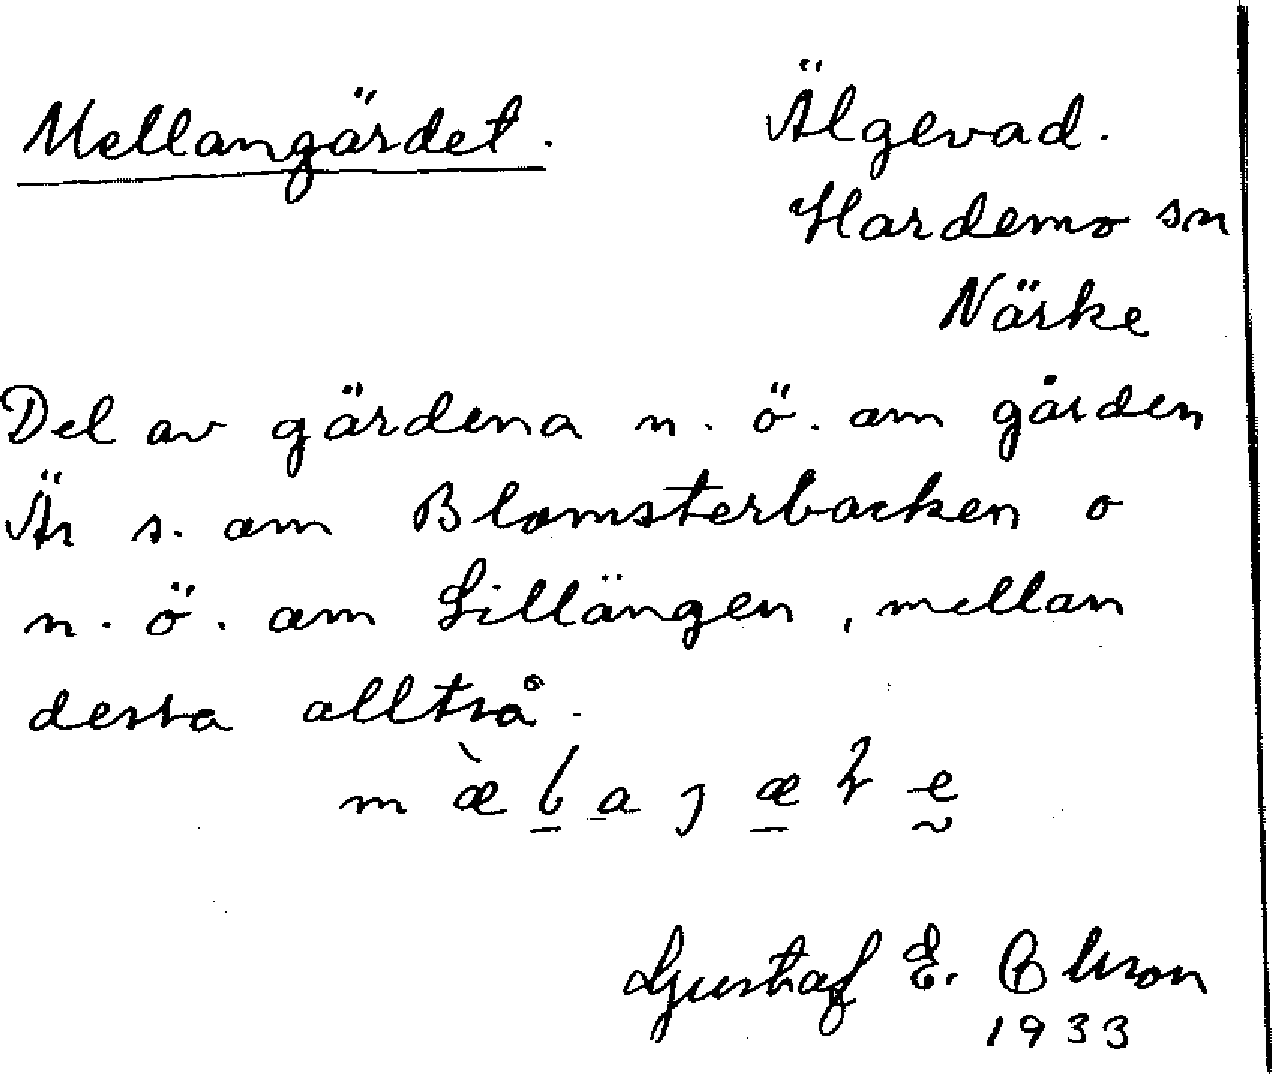 Mellangärdet. Älgevad.
Hardemo sn
Närke
Del av gärdena n. ö. om gården
Är s. om Blomsterbacken o
n. ö. om Lillängen, mellan
dessa alltså.
Gustaf E. Olsson
1933